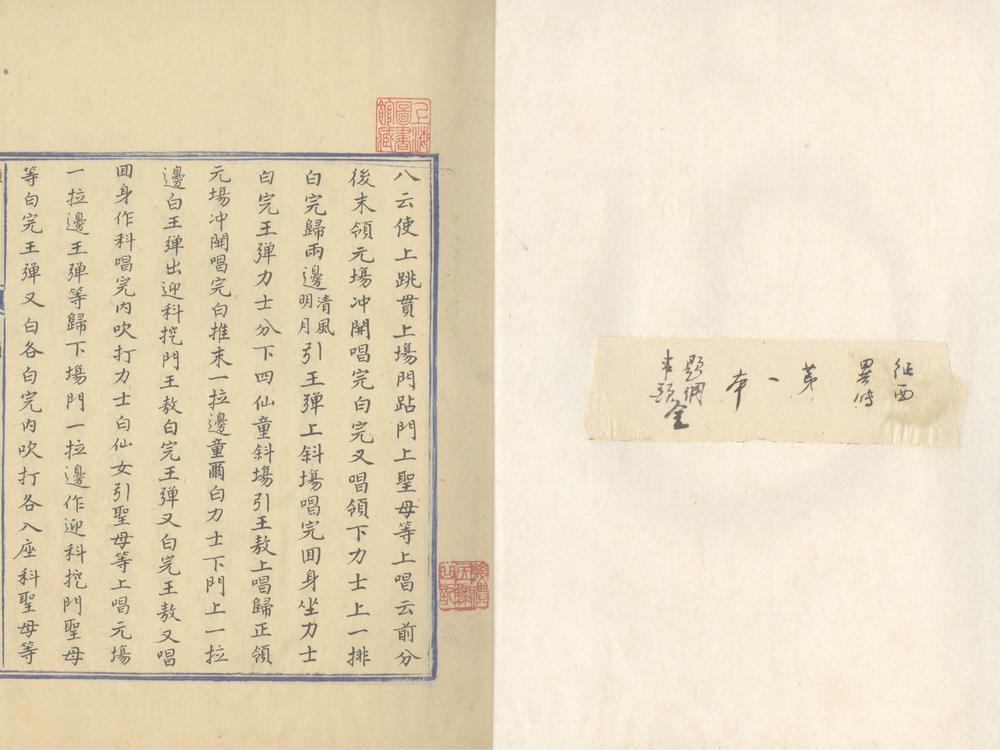 征西
異傳
第一本
題綱
串頭
全
上海
圖書
館藏
八云使上跳貫上場門跕門上聖母等上唱云前分
後末領元場冲開唱完白完又唱領下力士上一排
白完歸兩邊清風明月引王弹上斜場唱完囬身坐力士
白完王弹力士分下四仙童斜場引王敖上唱歸正領
元場冲開唱完白推末一拉邊童爾白力士下門上一拉
邊白王弹出迎科挖門王敖白完王弹又白完王敖又唱
囬身作科唱完內吹打力士白仙女引聖母等上唱元場
一拉邊王弹等歸下場門一拉邊作迎科挖門聖母
等白完王弹又白各白完內吹打各入座科聖母等